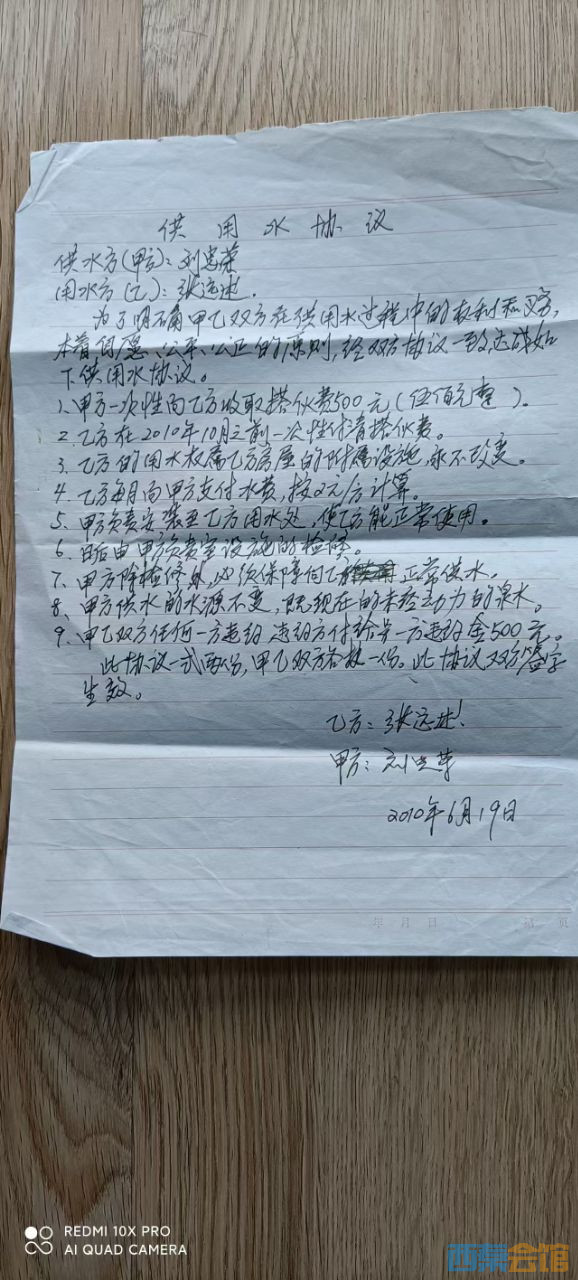 供用水协议
供水方(甲方):刘忠荣
用水方(乙):张远述.
为了明确甲乙双方在供用水过程中的权利和义务,
本着自愿、公平、公正的原则,经双方协议一致,达成如
下供用水协议。
1、甲方一次性向乙方收取搭伙费500元(伍佰元整)。
2、乙方在2010年10月之前一次性付清搭伙费。
3、乙方的用水权属乙方房屋的附属设施,永不改变。
4、乙方每月向甲方支付水费,按2元/方计算。
5、甲方负责安装至乙方用水处,使乙方能正常使用。
6、日后由甲方负责室设施的检修。
7、甲方除检修外,必须保障向乙方正常供水。
8、甲方供水的水源不变,既现在的未经动力的泉水。
9、甲乙双方任何一方违约,违约方付给另一方违约金500元。
此协议一式两份,甲乙双方各执一份。此协议双方签字
生效。
乙方:张远述
甲方:刘忠荣
2010年6月19日
年 月 日 第 页
REDMI 10X PRO
AI QUAD CAMERA
西祠会馆